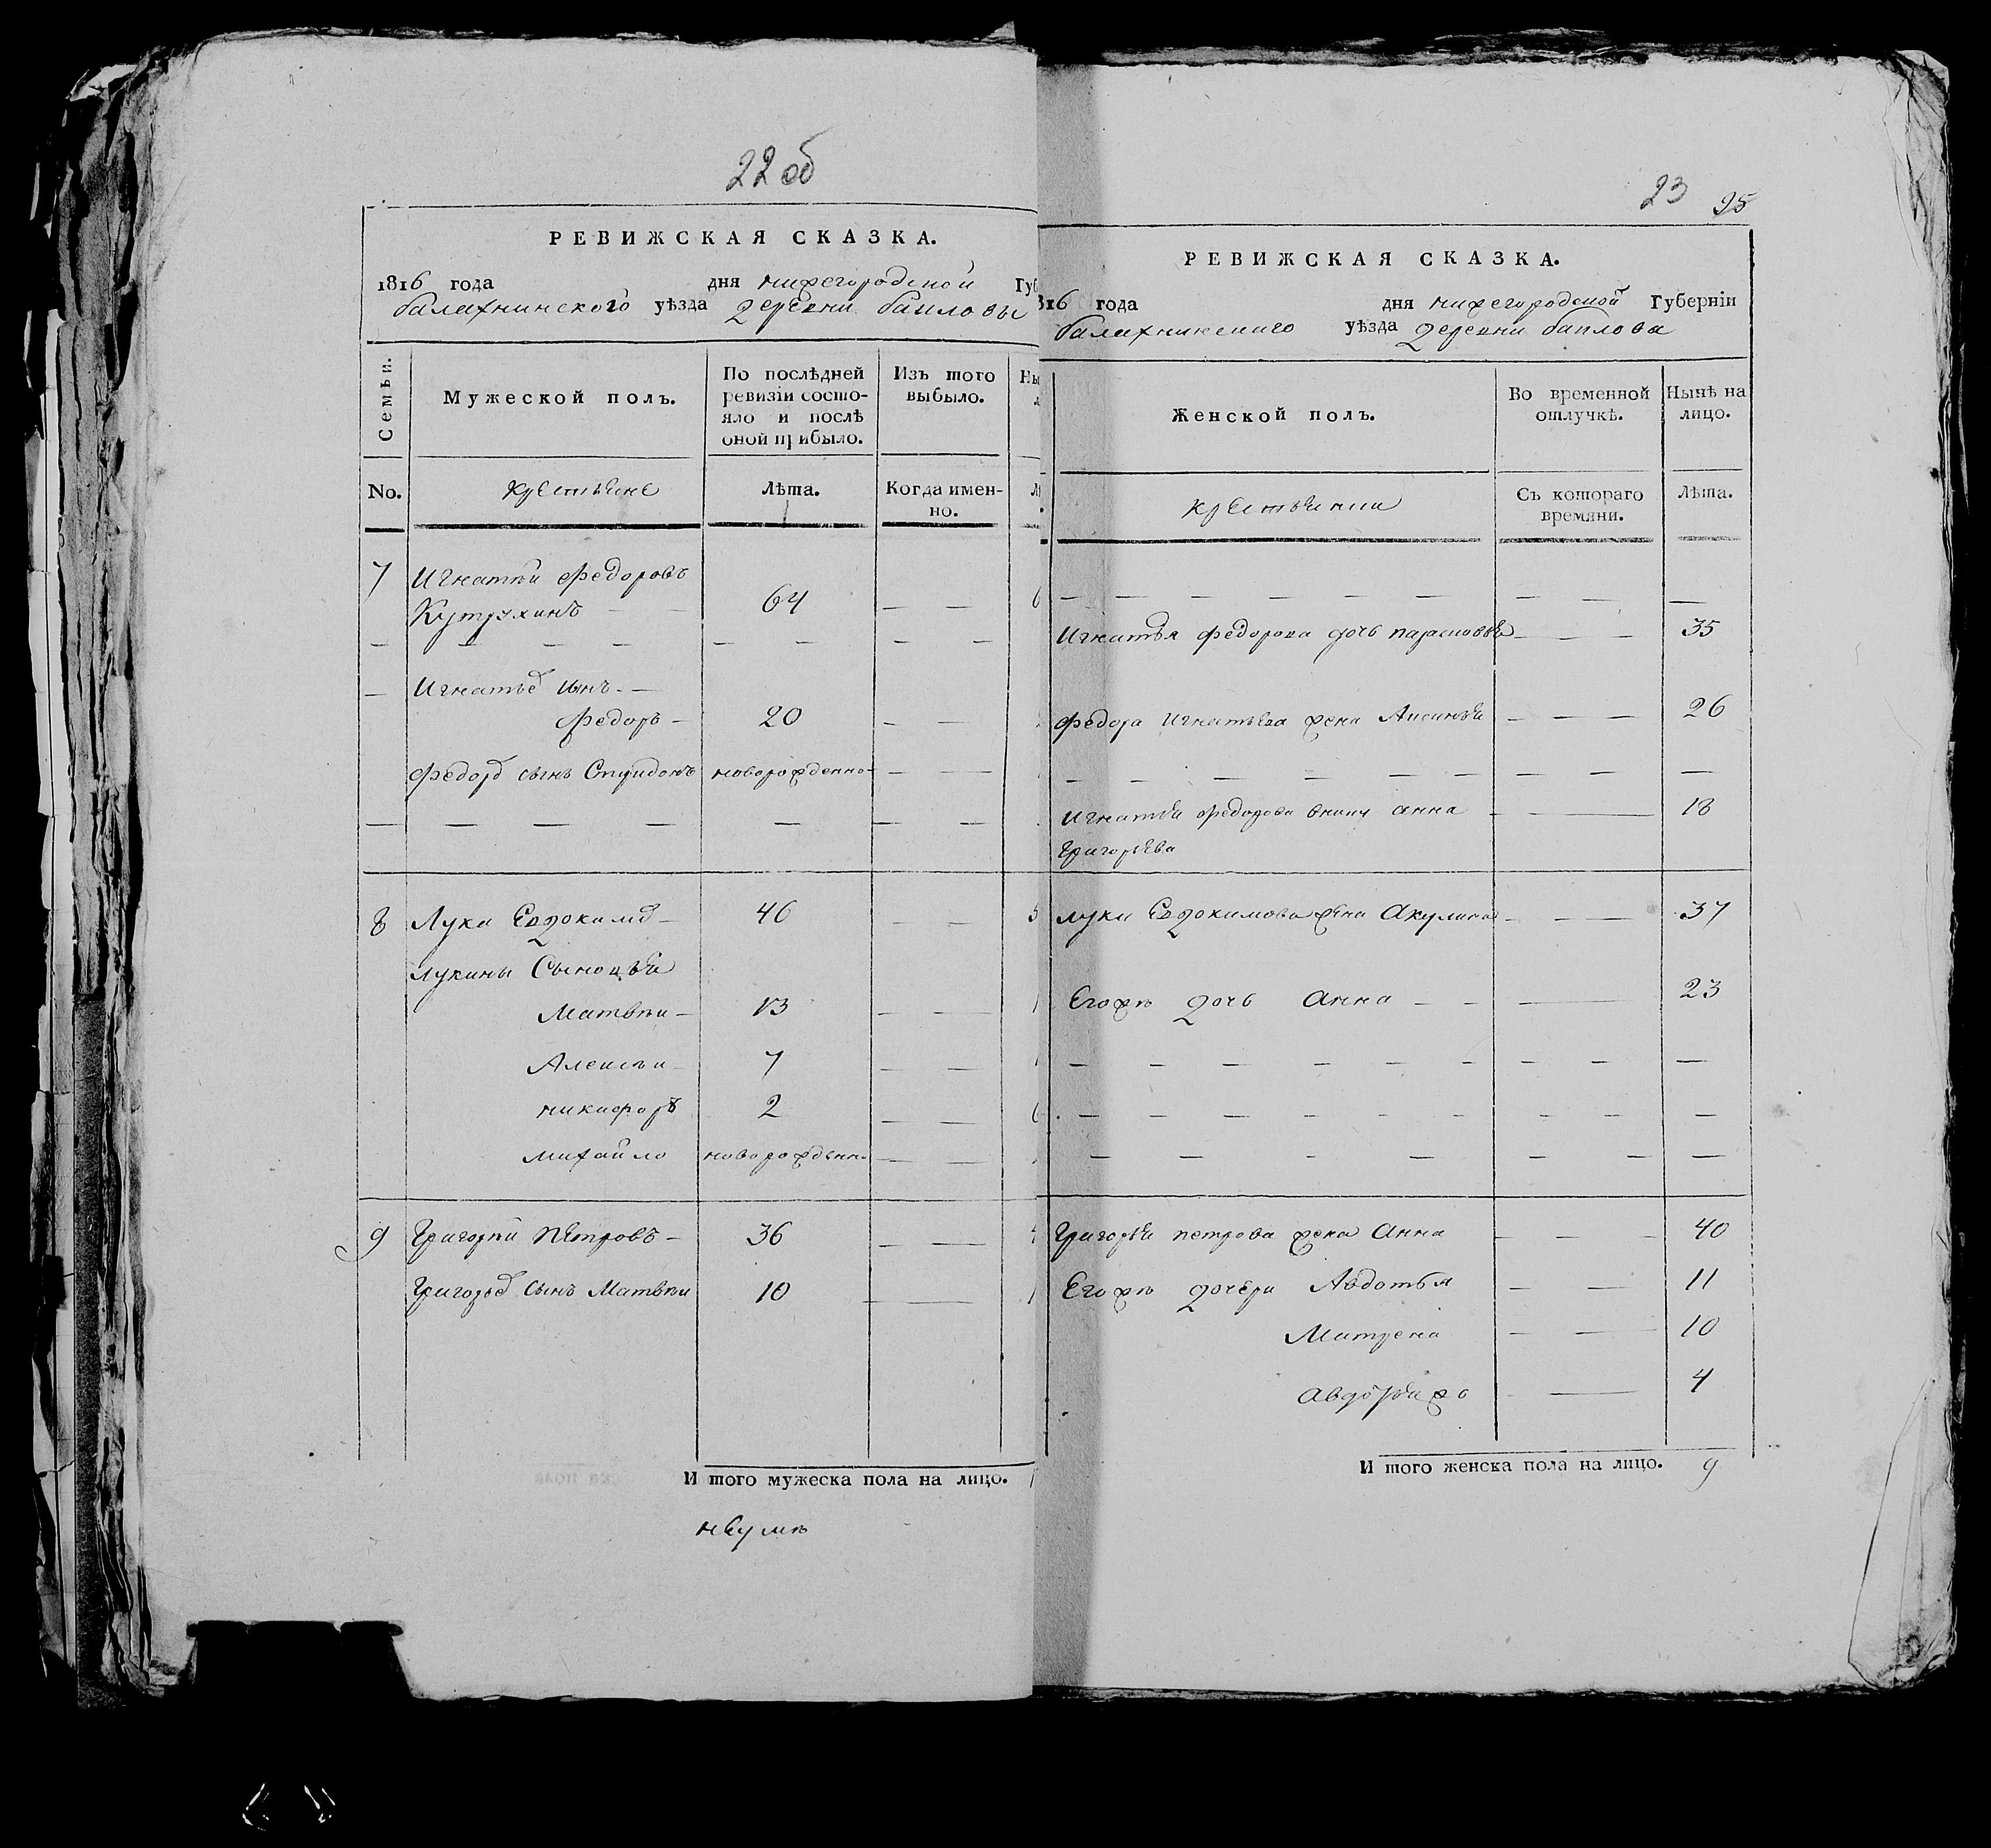 22 об
РЕВИЖСКАЯ СКАЗКА.
1816 года дня нижегородской Губ
балахнинского уѣзда деревни баиловы
Семьи.
Мужеской полъ.
По послѣдней ревизіи состо-
яло и послѣ
оной прибыло.
Изъ того
выбыло.
Ны
No.
крестьяне
Лѣта.
Когда имен-
но.
7 Игнатіи Федоровъ
Кутузкинъ — — 64 — — 6
— — — — — — — —
— Игнатьева сынъ —
Федоръ — 20 — —
Федора сынъ Спиридонъ новорожденно — —
— — — — — — —
8 Лука Евдокимов — 46 — — 5
лукины Сыновья
Матвѣи — 13 — — 1
Алексѣи — 7 — —
никифоръ 2 — — 6
михайло новорожденн — —
9 Григорій Петровъ — 36 — —
Григорья Сынъ Матвѣи 10 — — 1
И того мужеска пола на лицо. 1
23 25
РЕВИЖСКАЯ СКАЗКА.
816 года дня нижегородской Губерніи
балахнинского уѣзда деревни баилова
Женской полъ.
Во временной
отлучкѣ.
Нынѣ на
лицо.
крестьянки
Съ котораго
времяни.
Лѣта.
— — — — — — — — —
Игнатья Федорова дочь парасковья — — 35
Федора Игнатьева жена Аксинья — — — 26
— — — — — — — — —
Игнатья Федорова внука анна — — 18
Григорьева
луки Евдокимова жена Акулина — — — 37
Егожъ дочь Анна — — — 23
— — — — — — — — —
— — — — — — — — —
— — — — — — —
Григорья петрова жена Анна — — — 40
Егожъ дочери Авдотья — — 11
Матрена — — 10
— — 4
И того женска пола на лицо. 9